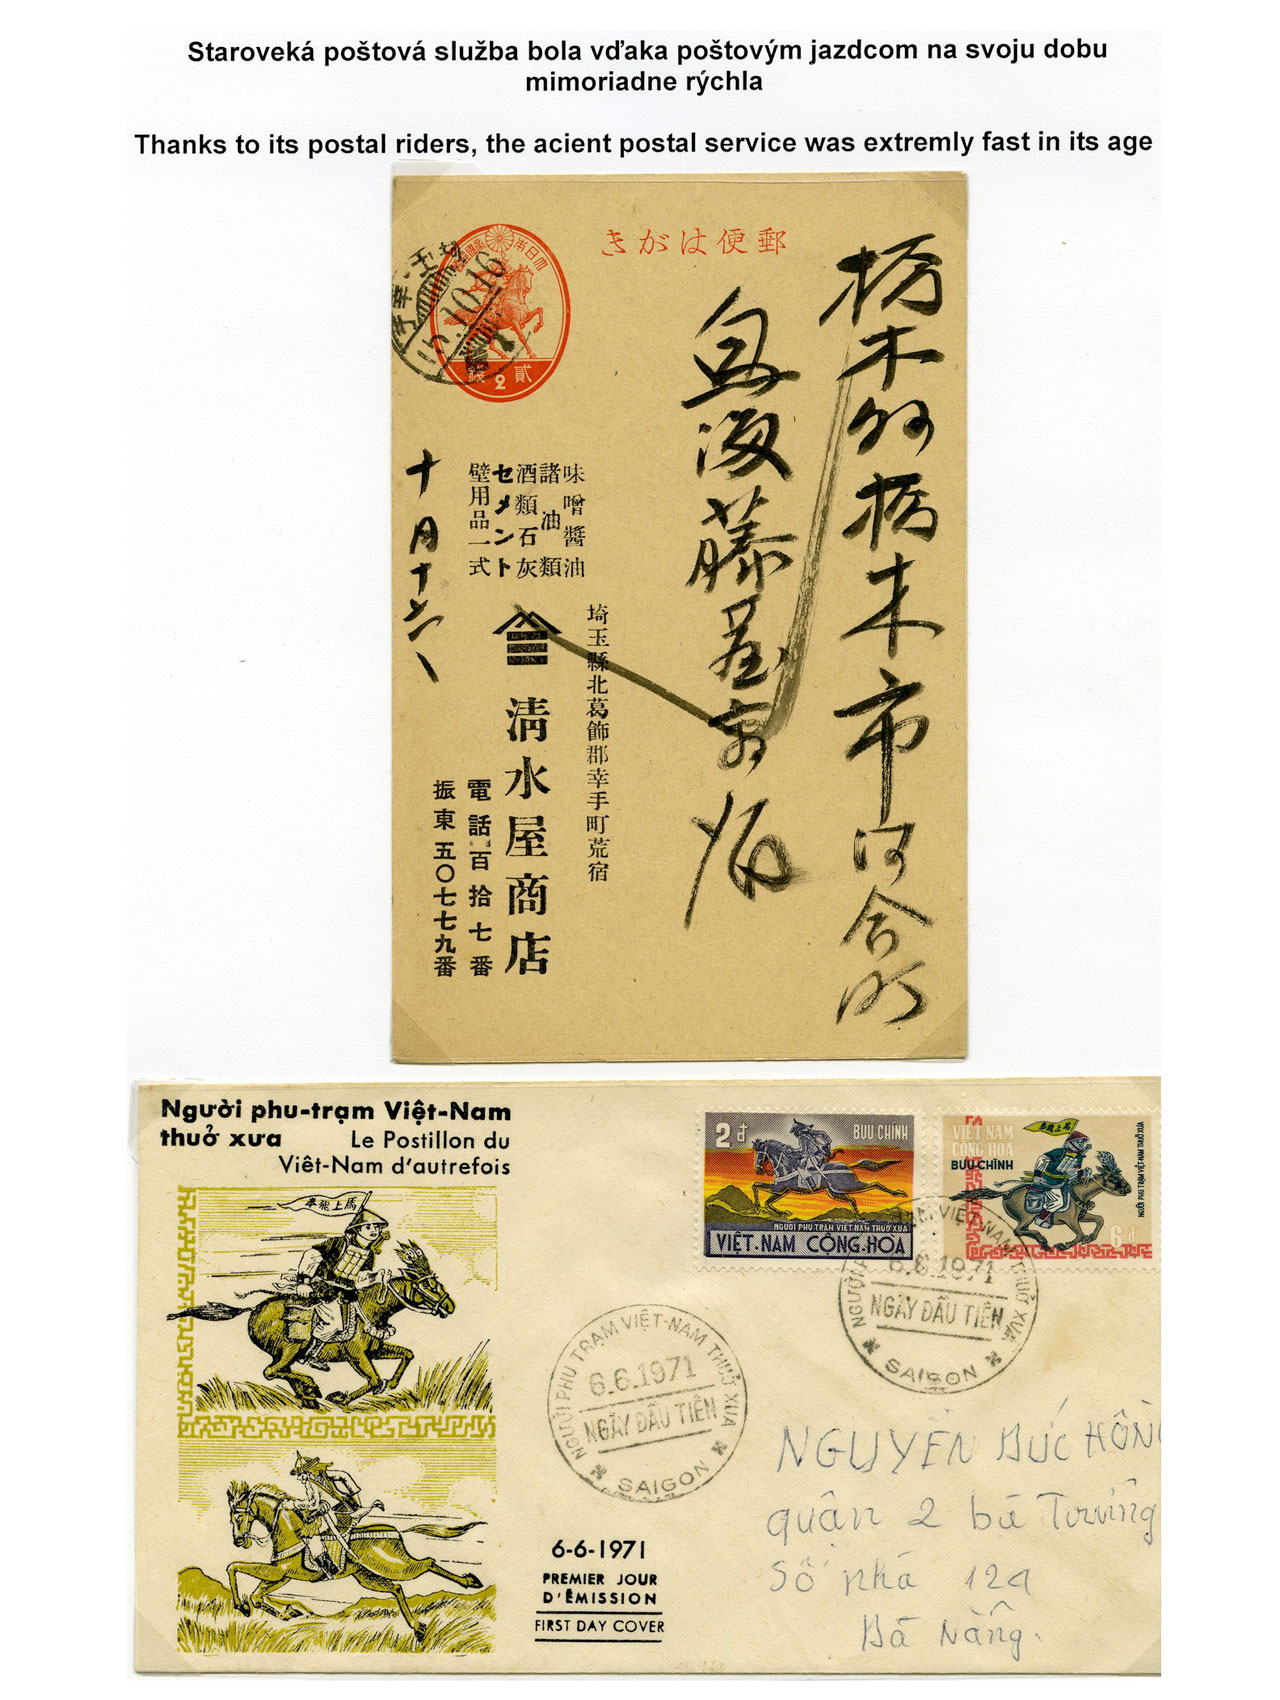 Staroveká poštová služba bola vďaka poštovým jazdcom na svoju dobu
mimoriadne rýchla
Thanks to its postal riders, the acient postal service was extremly fast in its age
郵便はがき
大日本帝國郵便
貳 2 銭
5.10.16
栃木縣栃木市河合町
鳥海藤
味噌醬油
諸油類
酒類石灰
セメント
壁用品一式
十月十六
埼玉縣北葛飾郡幸手町荒宿
清水屋商店
電話百拾七番
振東五〇七七九番
Người phu-trạm Việt-Nam
thuở xưa Le Postillon du
Viêt-Nam d'autrefois
馬上飛奉
2đ BƯU CHÍNH
NGƯỜI PHU TRẠM VIỆT NAM THUỞ XƯA
VIỆT-NAM CỘNG-HÒA
VIỆT-NAM
CỘNG-HÒA
BƯU-CHÍNH
馬上飛奉
NGƯỜI PHU TRẠM VIỆT-NAM THUỞ XƯA
6đ
NGƯỜI PHU TRẠM VIỆT-NAM THUỞ XƯA
6.6.1971
NGÀY ĐẦU TIÊN
SAIGON
NGƯỜI PHU TRẠM VIỆT-NAM THUỞ XƯA
6.6.1971
NGÀY ĐẦU TIÊN
SAIGON
6-6-1971
PREMIER JOUR
D'ÉMISSION
FIRST DAY COVER
NGUYỄN ĐỨC HỒNG
quận 2 bà Trưng
Số nhà 129
Đà Nẵng.